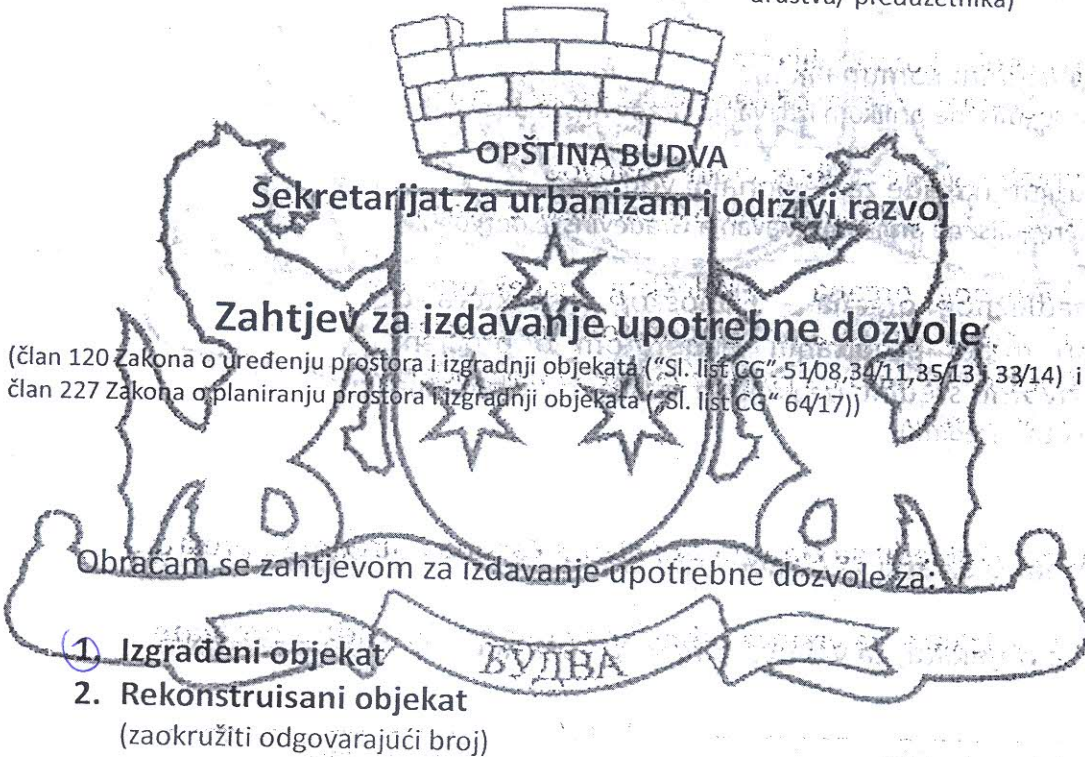 društva/ preduzetnika)
OPŠTINA BUDVA
Sekretarijat za urbanizam i održivi razvoj
Zahtjev za izdavanje upotrebne dozvole
(član 120 Zakona o uređenju prostora i izgradnji objekata ("Sl. list CG" 51/08,34/11,35/13 i 33/14) i
član 227 Zakona o planiranju prostora i izgradnji objekata ("Sl. list CG“ 64/17))
Obraćam se zahtjevom za izdavanje upotrebne dozvole za:
1. Izgrađeni objekat
БУДВА
2. Rekonstruisani objekat
(zaokružiti odgovarajući broj)